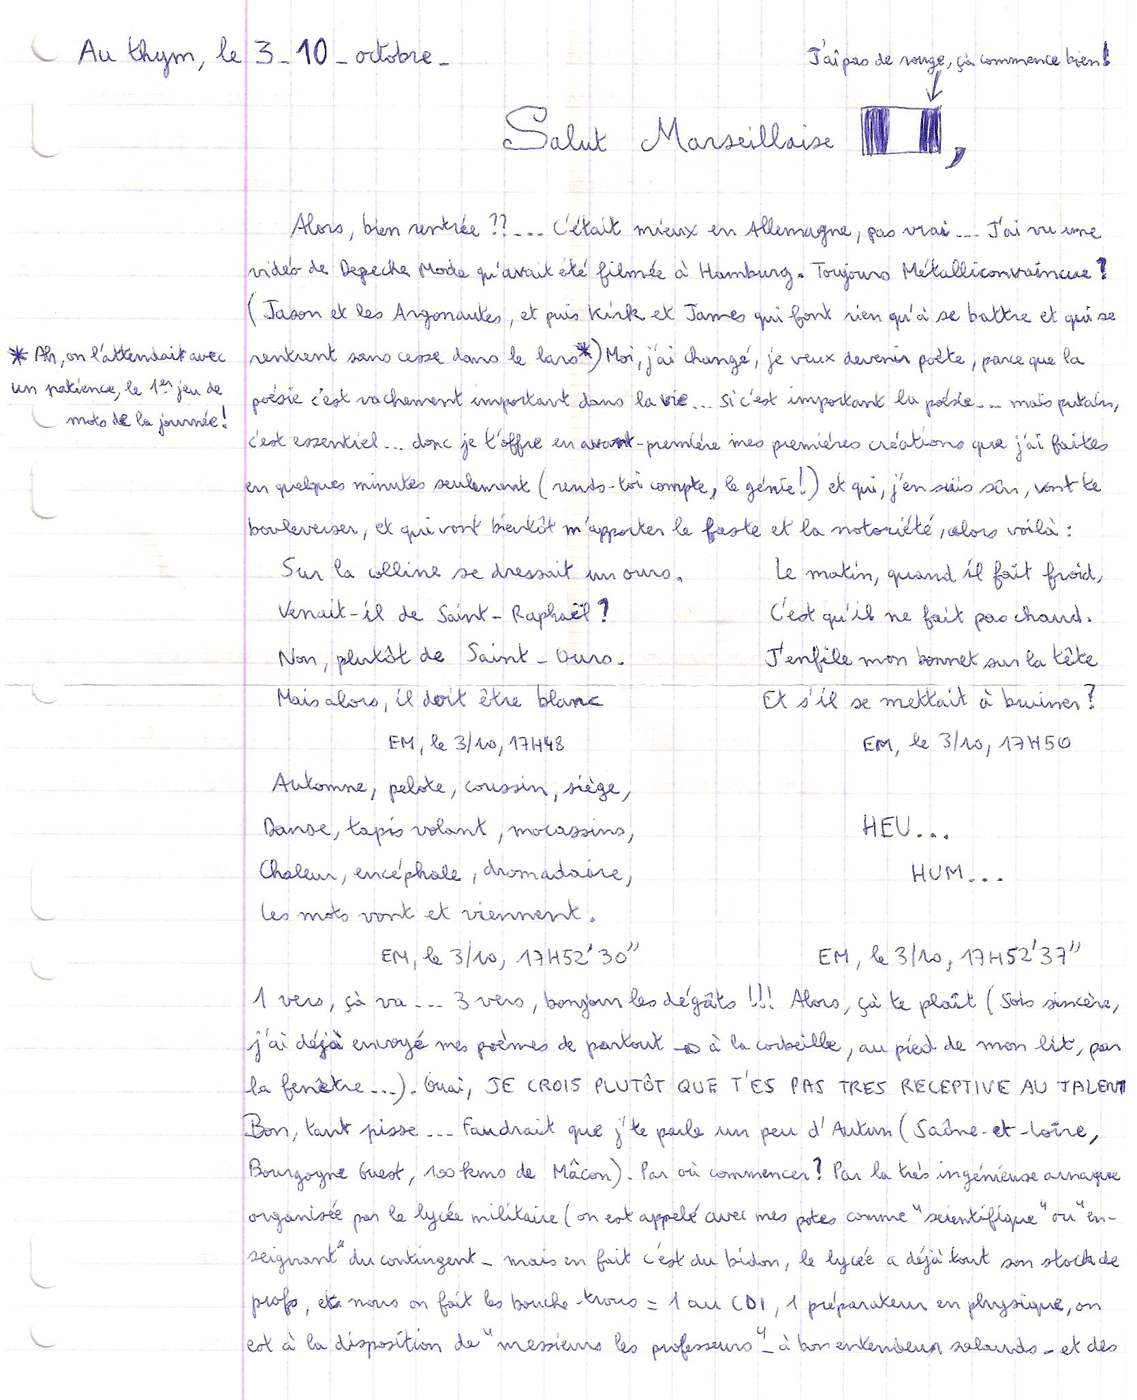 Au thym, le 3_10_octobre_
J'ai pas de rouge, çà commence bien!
Salut Marseillaise ,
Alors, bien rentrée ??... C'était mieux en Allemagne, pas vrai... J'ai vu une
vidéo de Depeche Mode qu'avait été filmée à Hamburg. Toujours Métalliconvaincue?
(Jason et les Argonautes, et puis Kirk et James qui font rien qu'à se battre et qui se
rentrent sans cesse dans le lars*) Moi, j'ai changé, je veux devenir poète, parce que la
* Ah, on l'attendait avec
un patience, le 1er jeu de
mots de la journée!
poésie c'est vachement important dans la vie... si c'est important la poésie... mais putain,
c'est essentiel... donc je t'offre en avant-première mes premières créations que j'ai faites
en quelques minutes seulement (rends-toi compte, le génie!) et qui, j'en suis sûr, vont te
bouleverser, et qui vont bientôt m'apporter le faste et la notoriété, alors voilà :
Sur la colline se dressait un ours.
Venait-il de Saint-Raphaël?
Non, plutôt de Saint-Ours.
Mais alors, il doit être blanc
EM, le 3/10, 17H48
Le matin, quand il fait froid,
C'est qu'il ne fait pas chaud.
J'enfile mon bonnet sur la tête
Et s'il se mettait à bruiner?
EM, le 3/10, 17H50
Automne, pelote, coussin, siège,
Danse, tapis volant, mocassins,
Chaleur, encéphale, dromadaire,
Les mots vont et viennent.
EM, le 3/10, 17H52'30"
HEU...
HUM...
EM, le 3/10, 17H52'37"
1 vers, çà va... 3 vers, bonjour les dégâts !!! Alors, çà te plaît (Sois sincère,
j'ai déjà envoyé mes poèmes de partout → à la corbeille, au pied de mon lit, par
la fenêtre...). Ouai, JE CROIS PLUTÔT QUE T'ES PAS TRES RECEPTIVE AU TALENT
Bon, tant pisse... Faudrait que j'te parle un peu d'Autun (Saône-et-Loire,
Bourgogne Ouest, 100 kms de Mâcon). Par où commencer? Par la très ingénieuse arnaque
organisée par le lycée militaire (on est appelé avec mes potes comme "scientifique" ou "en-
seignant" du contingent - mais en fait c'est du bidon, le lycée a déjà tout son stock de
profs, et nous on fait les bouche-trous = 1 au CDI, 1 préparateur en physique, on
est à la disposition de "messieurs les professeurs" - à bon entendeur salauds - et des